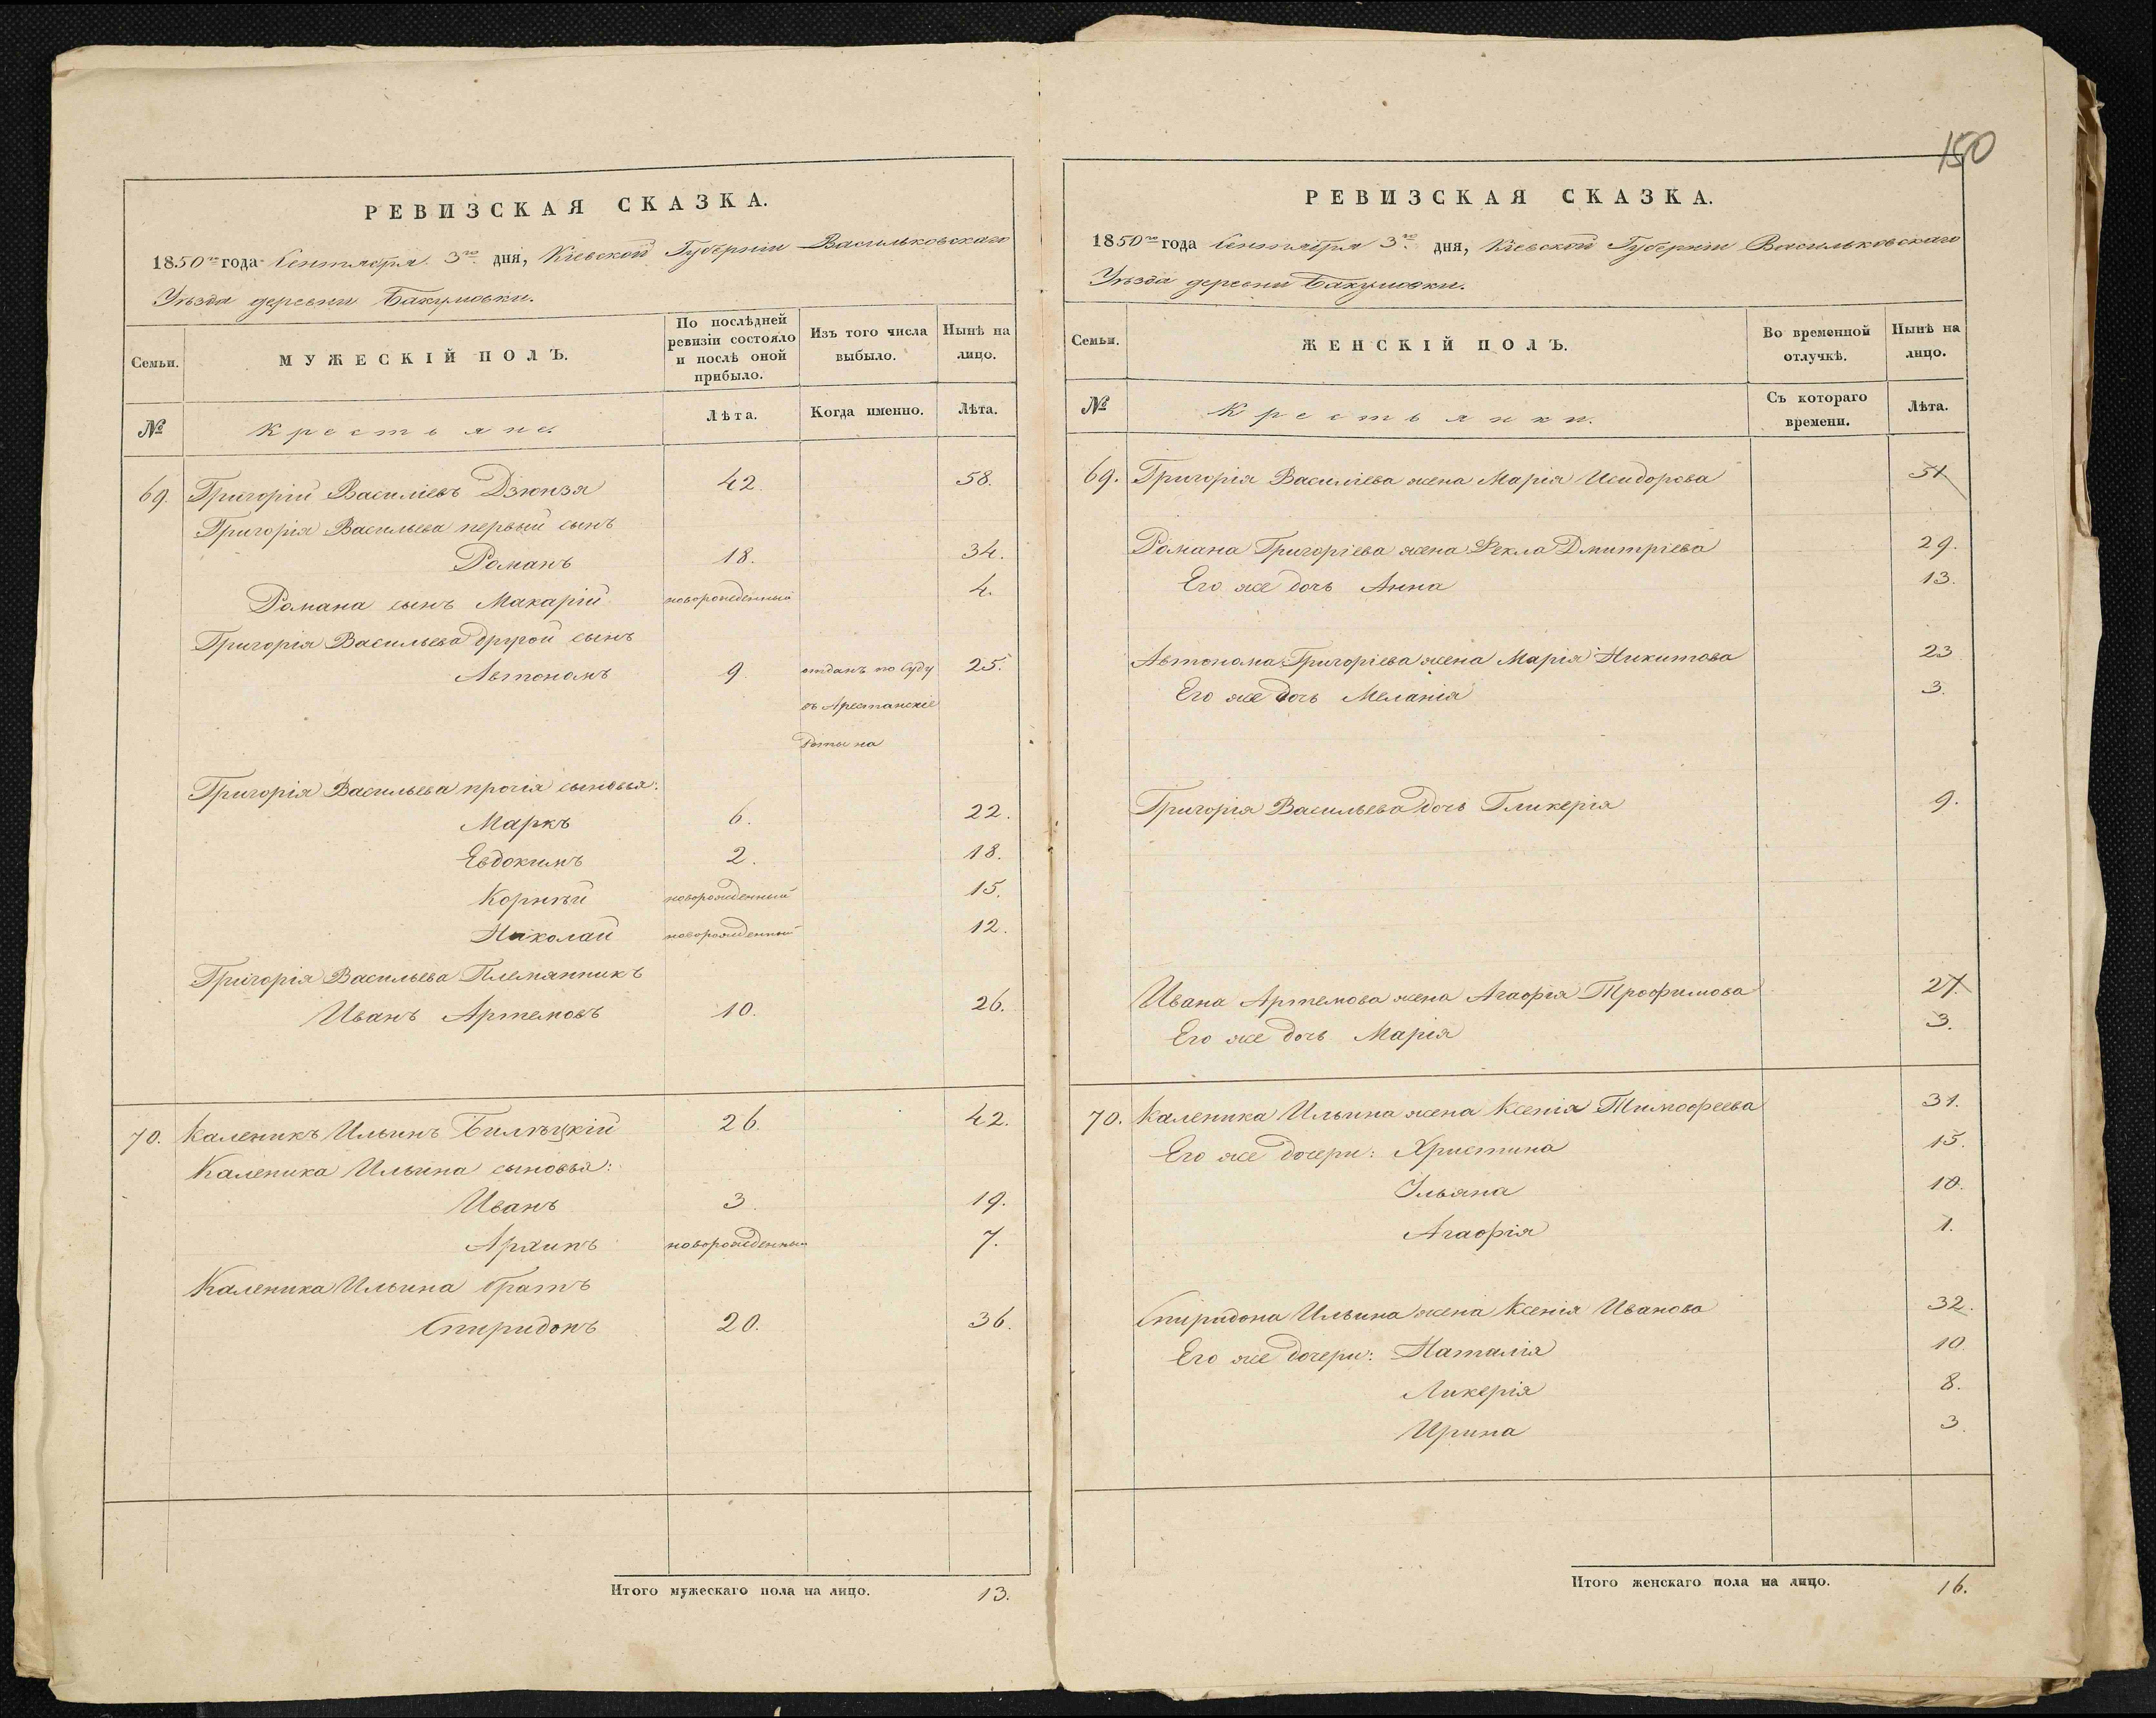 150
РЕВИЗСКАЯ СКАЗКА.
1850го года Сентября 3го дня, Кіевской Губерніи Васильковскаго
Уѣзда деревни Бакумовки.
Семьи.
МУЖЕСКІЙ ПОЛЪ.
По послѣдней ревизіи состояло и послѣ оной прибыло.
Изъ того числа выбыло.
Нынѣ на лицо.
№
Крестьяне
Лѣта.
Когда именно.
Лѣта.
69. Григорій Василіевъ Дзюнзя 42. 58.
Григорія Васильева первый сынъ
Романъ 18. 34.
Романа сынъ Макарій новорожденный 4.
Григорія Васильева другой сынъ
Автономъ 9. отданъ по суду 25.
въ Арестанскіе
Роты на
Григорія Васильева прочія сыновья:
Маркъ 6. 22.
Евдокимъ 2. 18.
Корнѣй новорожденный 15.
Николай новорожденный 12.
Григорія Васильева Племянникъ
Иванъ Артемовъ 10. 26.
70. Каленикъ Ильинъ Билѣцкій 26. 42.
Каленика Ильина сыновья:
Иванъ 3. 19.
Архипъ новорожденный 7.
Каленика Ильина братъ
Спиридонъ 20. 36.
Итого мужескаго пола на лицо. 13.
РЕВИЗСКАЯ СКАЗКА.
1850го года Сентября 3го дня, Кіевской Губерніи Васильковскаго
Уѣзда деревни Бакумовки.
Семьи.
ЖЕНСКІЙ ПОЛЪ.
Во временной отлучкѣ.
Нынѣ на лицо.
№
Крестьянки.
Съ котораго времени.
Лѣта.
69. Григорія Василіева жена Марія Исидорова 51
Романа Григоріева жена Фекла Дмитріева 29.
Его же дочь Анна 13.
Автонома Григоріева жена Марія Никитова 23
Его же дочь Меланія 3.
Григорія Васильева дочь Гликерія 9.
Ивана Артемова жена Агафія Трофимова 27.
Его же дочь Марія 3.
70. Каленика Ильина жена Ксенія Тимофеева 31.
Его же дочери: Христина 15.
Ульяна 10.
Агафія 1.
Спиридона Ильина жена Ксенія Иванова 32.
Его же дочери: Наталія 10
Ликерія 8.
Ирина 3.
Итого женскаго пола на лицо. 16.